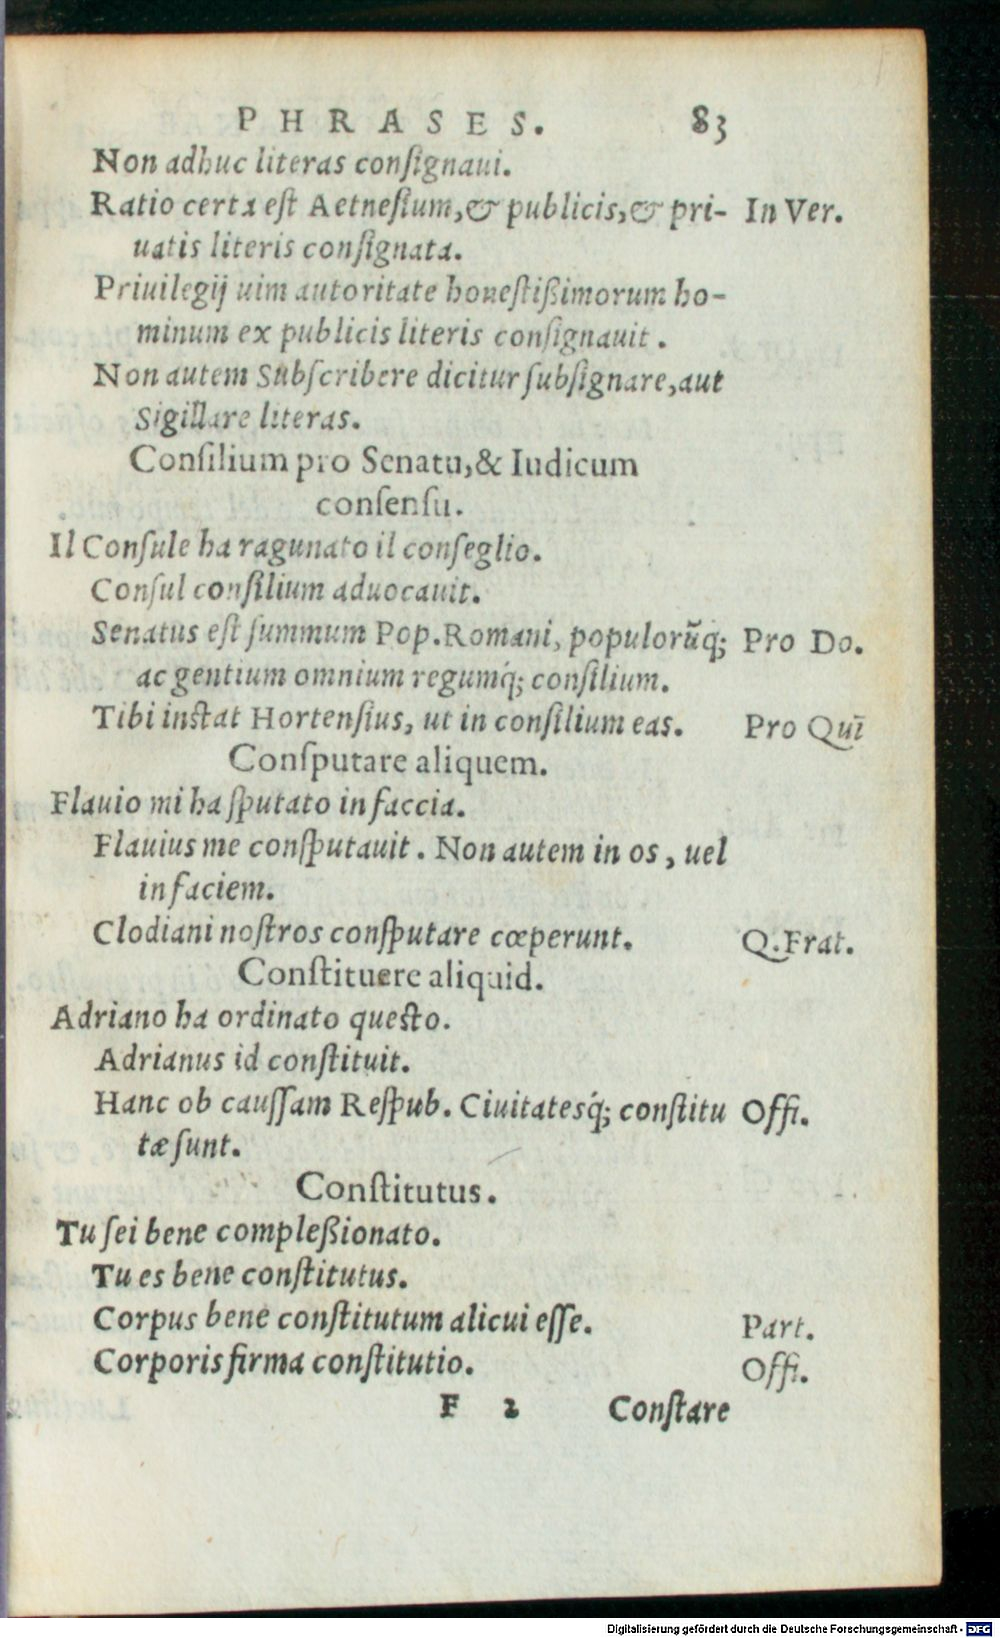 PHRASES. 83
Non adhuc literas consignaui.
Ratio certa est Aetnesium, & publicis, & pri- In Ver.
uatis literis consignata.
Priuilegij uim autoritate honestißimorum ho-
minum ex publicis literis consignauit.
Non autem Subscribere dicitur subsignare, aut
Sigillare literas.
Consilium pro Senatu, & Iudicum
consensu.
Il Consule ha ragunato il conseglio.
Consul consilium aduocauit.
Senatus est summum Pop. Romani, populorũq́; Pro Do.
ac gentium omnium regumq́; consilium.
Tibi instat Hortensius, ut in consilium eas. Pro Quī
Consputare aliquem.
Flauio mi ha sputato in faccia.
Flauius me consputauit. Non autem in os, uel
in faciem.
Clodiani nostros consputare cœperunt. Q. Frat.
Constituere aliquid.
Adriano ha ordinato questo.
Adrianus id constituit.
Hanc ob caussam Respub. Ciuitatesq́; constitu Offi.
tæ sunt.
Constitutus.
Tu sei bene compleßionato.
Tu es bene constitutus.
Corpus bene constitutum alicui esse. Part.
Corporis firma constitutio. Offi.
F 2 Constare
Digitalisierung gefördert durch die Deutsche Forschungsgemeinschaft - DFG